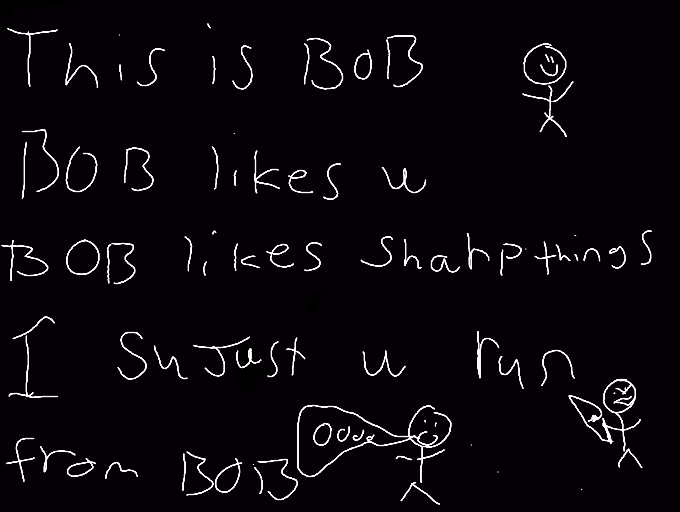 This is BOB
BOB likes u
BOB likes Sharp things
I SuJust u run
from BOB
Oooo